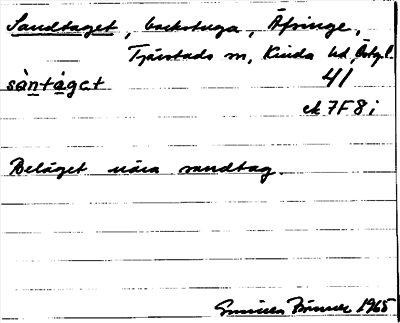 Sandtaget, backstuga, Äfringe,
Tjärstads sn, Kinda hd, Östgl.
sàntáget 41
ek 7F8i
Beläget nära sandtag.
Gunilla 1965